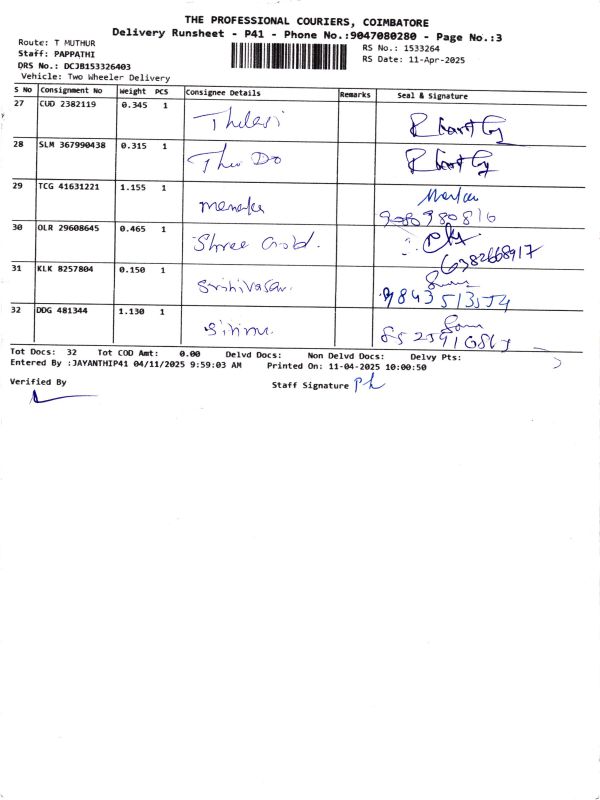 THE PROFESSIONAL COURIERS, COIMBATORE
Delivery Runsheet - P41 - Phone No.:9047080280 - Page No.:3
Route: T MUTHUR
RS No.: 1533264
Staff: PAPPATHI
RS Date: 11-Apr-2025
DRS No.: DCJB153326403
Vehicle: Two Wheeler Delivery
S No Consignment No Weight PCS Consignee Details Remarks Seal & Signature
27 CUD 2382119 0.345 1
28 SLM 367990438 0.315 1
29 TCG 41631221 1.155 1 menaka
9080980816
30 OLR 29608645 0.465 1 Shree Gold.
6382668917
31 KLK 8257804 0.150 1 Srinivasan.
9843513554
32 DDG 481344 1.130 1
Tot Docs: 32 Tot COD Amt: 0.00 Delvd Docs: Non Delvd Docs: Delvy Pts:
Entered By :JAYANTHIP41 04/11/2025 9:59:03 AM Printed On: 11-04-2025 10:00:50
Verified By
Staff Signature